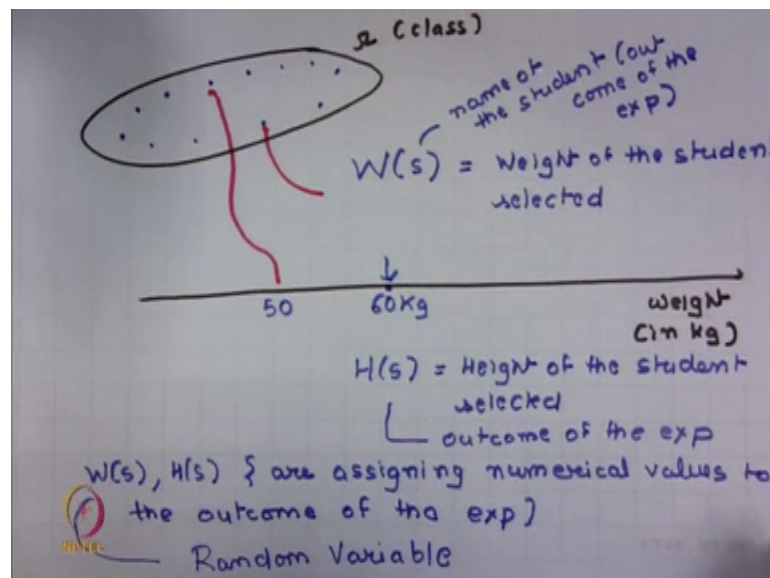 Ω (class)
name of
the student (out
come of the
exp)
W(s) = Weight of the studen
selected
50 60Kg weight
(in kg)
H(s) = Height of the student
selected
outcome of the exp
W(s), H(s) { are assigning numerical values to
the outcome of the exp)
NPTEL
Random Variable